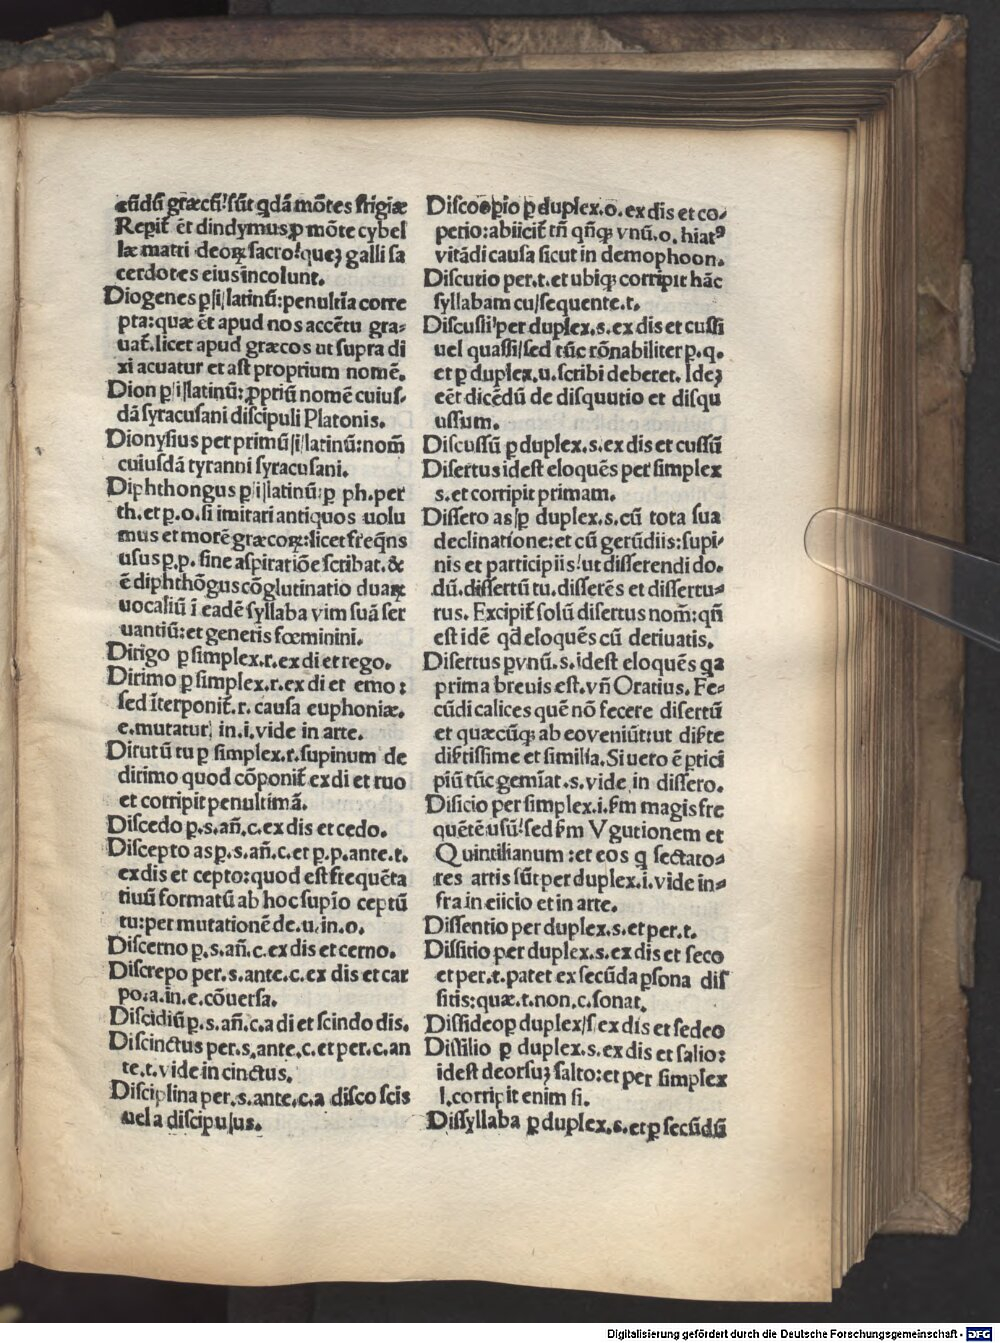 cūdū græcū: sūt qdā mōtes frigiæ
Reperit̄ et̄ dindymus ꝓ mōte cybel
læ matri deoꝝ sacro: queꝫ galli sa
cerdotes eius incolunt.
Diogenes ꝑ|i|latinū: penultīa corre
pta: quæ et̄ apud nos accētu gra-
uat̄. licet apud græcos ut supra di
xi acuatur et ast proprium nomē.
Dion ꝑ|i|latinū: ꝓpriū nomē cuius-
dā syracusani discipuli Platonis.
Dionysius per primū|i|latinū: nom̄
cuiusdā tyranni syracusani.
Diphthongus ꝑ|i|latinū: ꝑ ph. per
th. et ꝑ. o. si imitari antiquos uolu
mus et morē græcoꝝ: licet freq̄ns
usus ꝑ. p. sine aspiratiōe scribat. &
ē diphthōgus cōglutinatio duaꝝ
uocaliū ī eadē syllaba vim suā ser
uantiū: et generis fœminini.
Dirigo ꝑ simplex. r. ex di et rego.
Dirimo ꝑ simplex. r. ex di et emo:
sed īterponit̄. r. causa euphoniæ.
e. mutatur| in. i. vide in arte.
Dirutū tu ꝑ simplex. r. supinum de
dirimo quod cōponit̄ ex di et ruo
et corripit penultimā.
Discedo ꝑ. s. añ. c. ex dis et cedo.
Discepto as ꝑ. s. añ. c. et ꝑ. p. ante. t.
ex dis et cepto: quod est frequēta
tiuū formatū ab hoc supīo ceptū
tu: per mutationē de. u. in. o.
Discerno ꝑ. s. añ. c. ex dis et cerno.
Discrepo per. s. ante. c. ex dis et car
po. a. in. e. cōuersa.
Discidiū ꝑ. s. añ. c. a di et scindo dis.
Discinctus per. s. ante. c. et per. c. an
te. t. vide in cinctus.
Disciplina per. s. ante. c. a disco scis
uel a discipulus.
Discoopio ꝑ duplex. o. ex dis et co-
perio: abiicit̄ tñ qñqꝫ vnū. o. hiatꝰ
vitādi causa sicut in demophoon.
Discutio per. t. et ubiqꝫ corripit hāc
syllabam cu|sequente. t.
Discussi per duplex. s. ex dis et cussi
uel quassi|sed tūc rōnabiliter ꝑ. q.
et ꝑ duplex. u. scribi deberet. Ideꝫ
eēt dicēdū de disquutio et disqu
ussum.
Discussū ꝑ duplex. s. ex dis et cussū
Disertus idest eloquēs per simplex
s. et corripit primam.
Dissero as|ꝑ duplex. s. cū tota sua
declinatione: et cū gerūdiis: supi-
nis et participiis: ut disserendi do.
dū. dissertū tu. disserēs et dissertu-
rus. Excipit̄ solū disertus nom̄: qñ
est idē qd eloquēs cū deriuatis.
Disertus ꝑ vnū. s. idest eloquēs qa
prima breuis est. vñ Oratius. Fe-
cūdi calices quē nō fecere disertū
et quæcūqꝫ ab eo veniūt: ut diẜte
diẜtissime et similia. Si uero ē ꝑtici
piū tūc gemīat. s. vide in dissero.
Disicio per simplex. i. ẜm magis fre
quētē usū: sed ẜm Vgutionem et
Quintilianum: et eos q sectato-
res artis sūt per duplex. i. vide in-
fra in eiicio et in arte.
Dissentio per duplex. s. et per. t.
Dissitio per duplex. s. ex dis et seco
et per. t. patet ex secūda ꝑsona dis
sitis: quæ. t. non. c. sonat.
Dissideo ꝑ duplex|s|ex dis et sedeo
Dissilio ꝑ duplex. s. ex dis et salio:
idest deorsuꝫ salto: et per simplex
l. corripit enim si.
Dissyllaba ꝑ duplex. s. et ꝑ secūdū
Digitalisierung gefördert durch die Deutsche Forschungsgemeinschaft - DFG